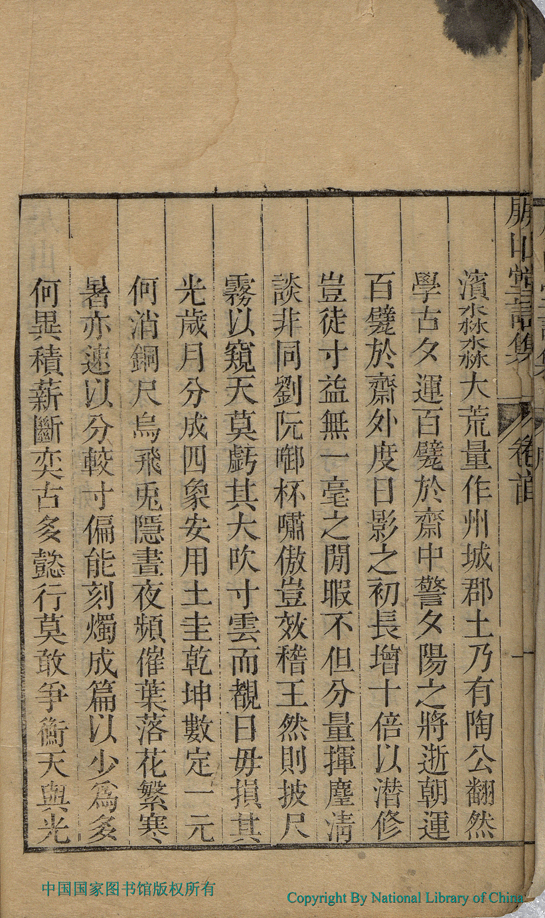 濱淼淼大荒量作州城郡土乃有陶公翻然
學古夕運百甓於齋中警夕陽之將逝朝運
百甓於齋外度日影之初長增十倍以潛修
豈徒寸益無一毫之閒暇不但分量揮麈清
談非同劉阮啣杯嘯傲豈效嵇王然則披尺
霧以窺天莫虧其大吹寸雲而覩日毋損其
光歲月分成四象安用土圭乾坤數定一元
何消銅尺烏飛兎隱晝夜頻催葉落花繁寒
暑亦速以分較寸偏能刻燭成篇以少爲多
何異積薪斷奕古多懿行莫敢爭衡天與光
卷首
一
中国国家图书馆版权所有
Copyright By National Library of China